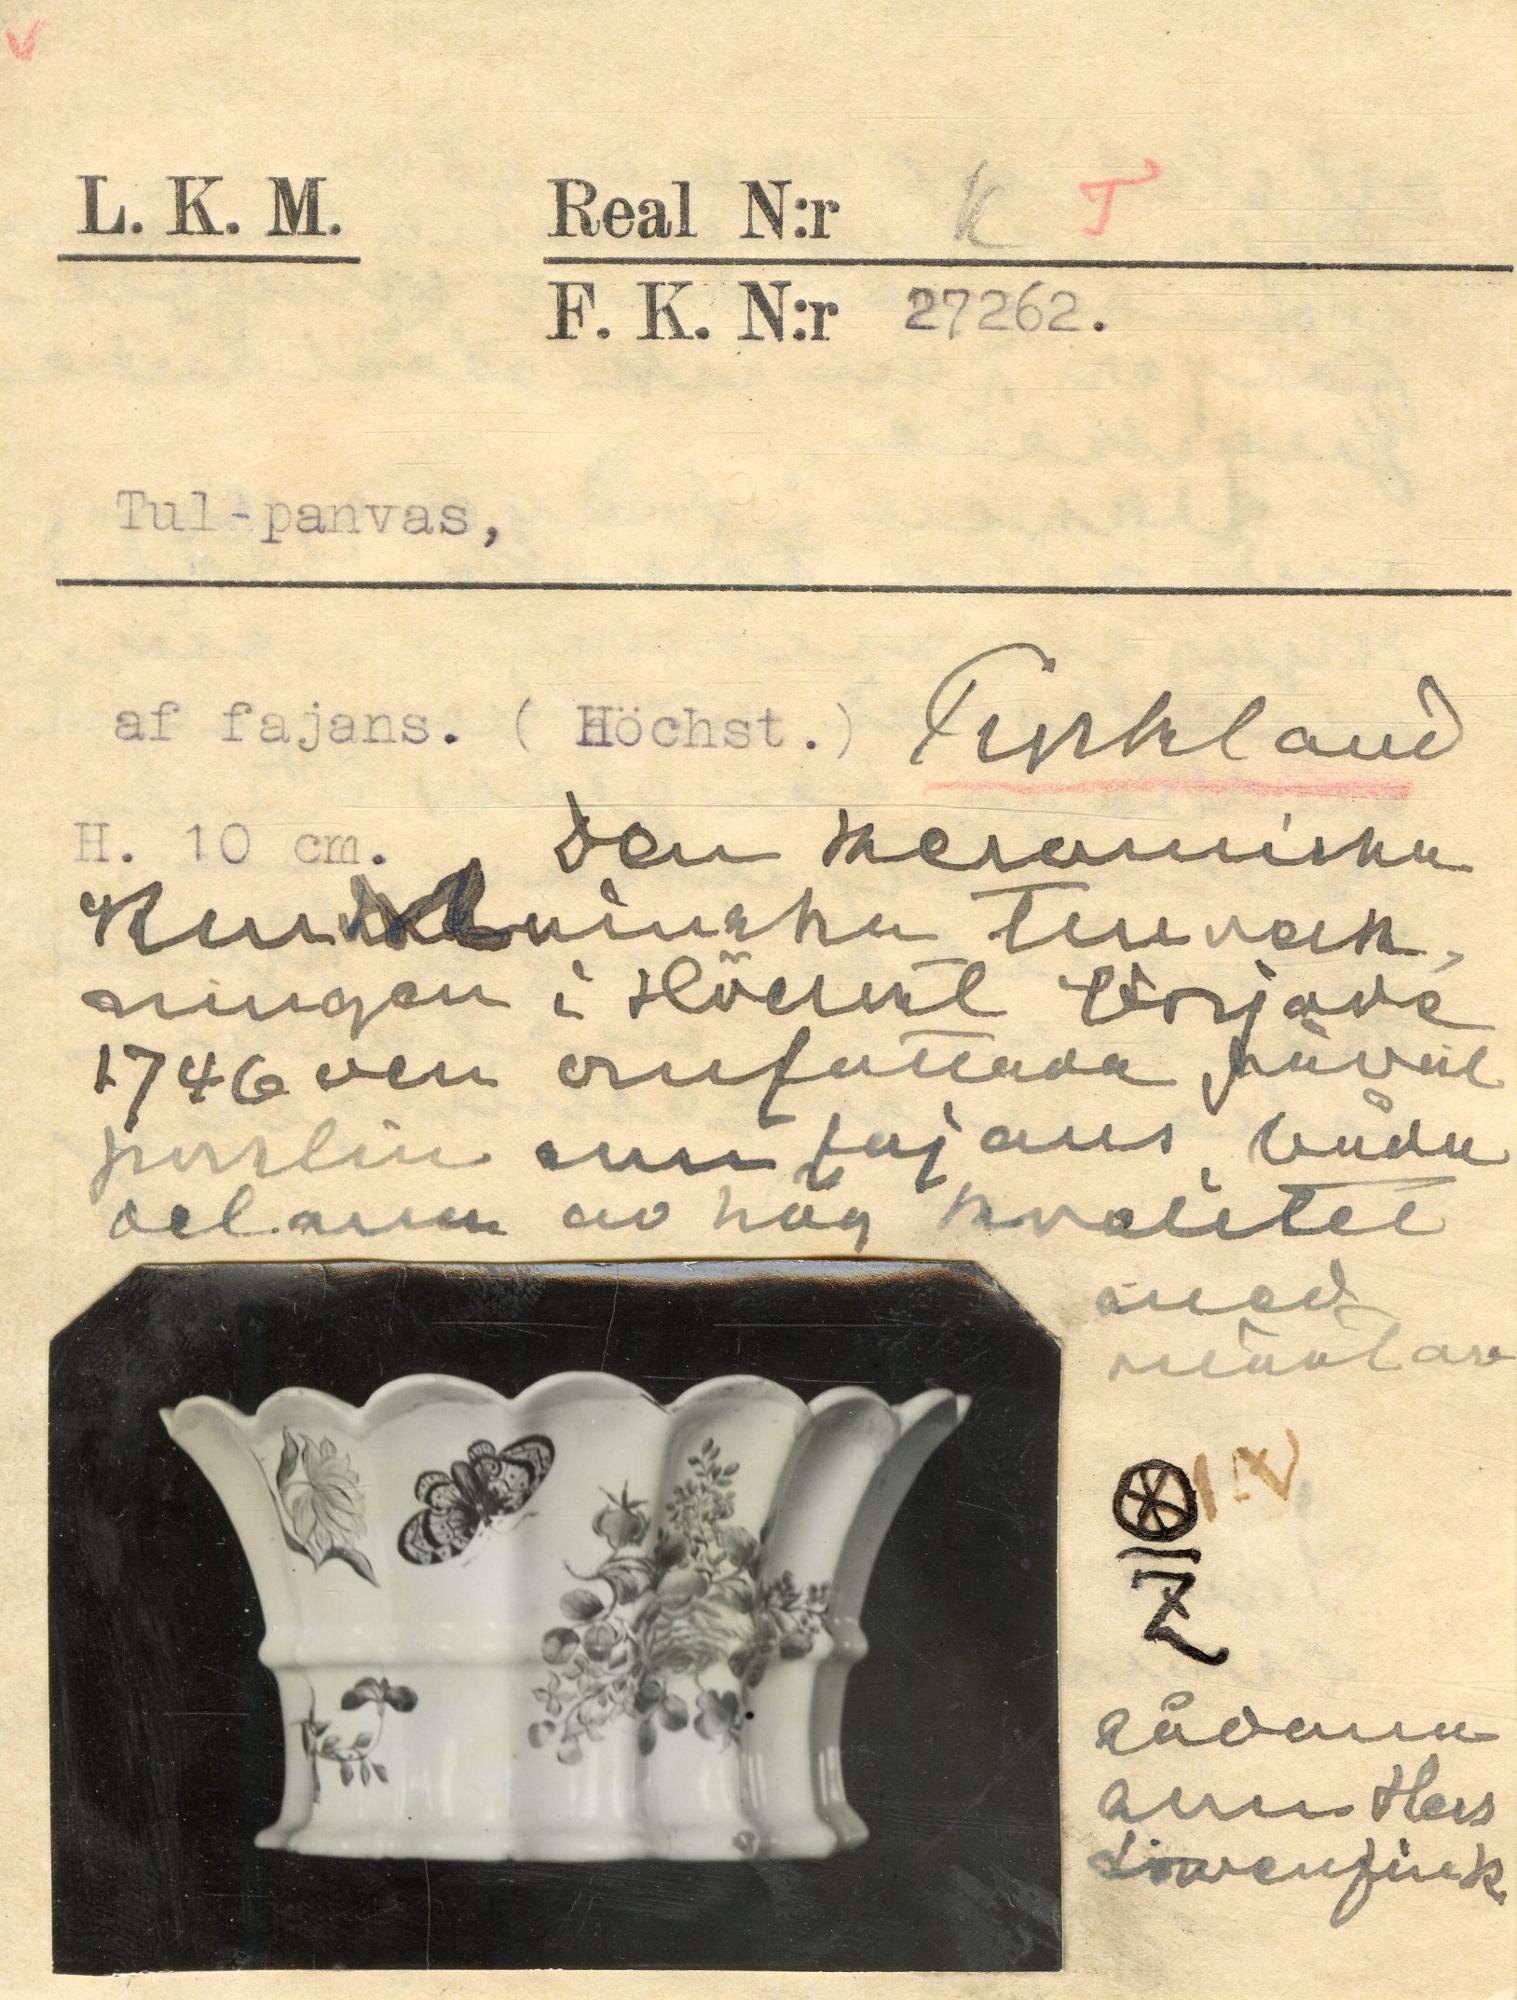 L. K. M. Real N:r K T
F. K. N:r 27262.
Tul-panvas,
af fajans. ( Höchst.) Tyskland
H. 10 cm. Den keramiska
tillverk-
ningen i Höchst började
1746 den omfattade såväl
porslin som fajans, båda
delarna av hög kvalitet
med
målare
sådana
som Hers
Löwenfink